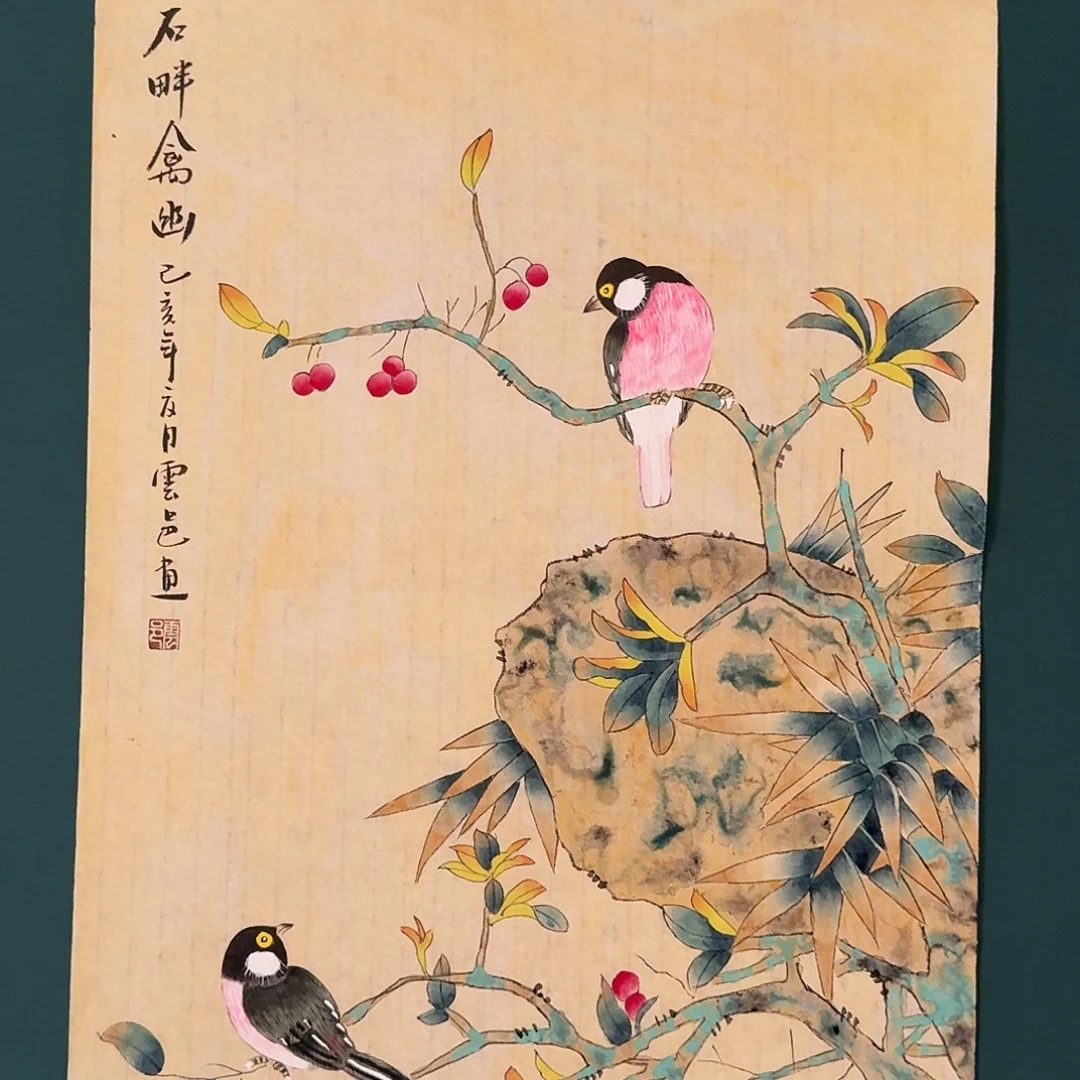 石畔禽幽己亥年夏月雲邑画
雲邑